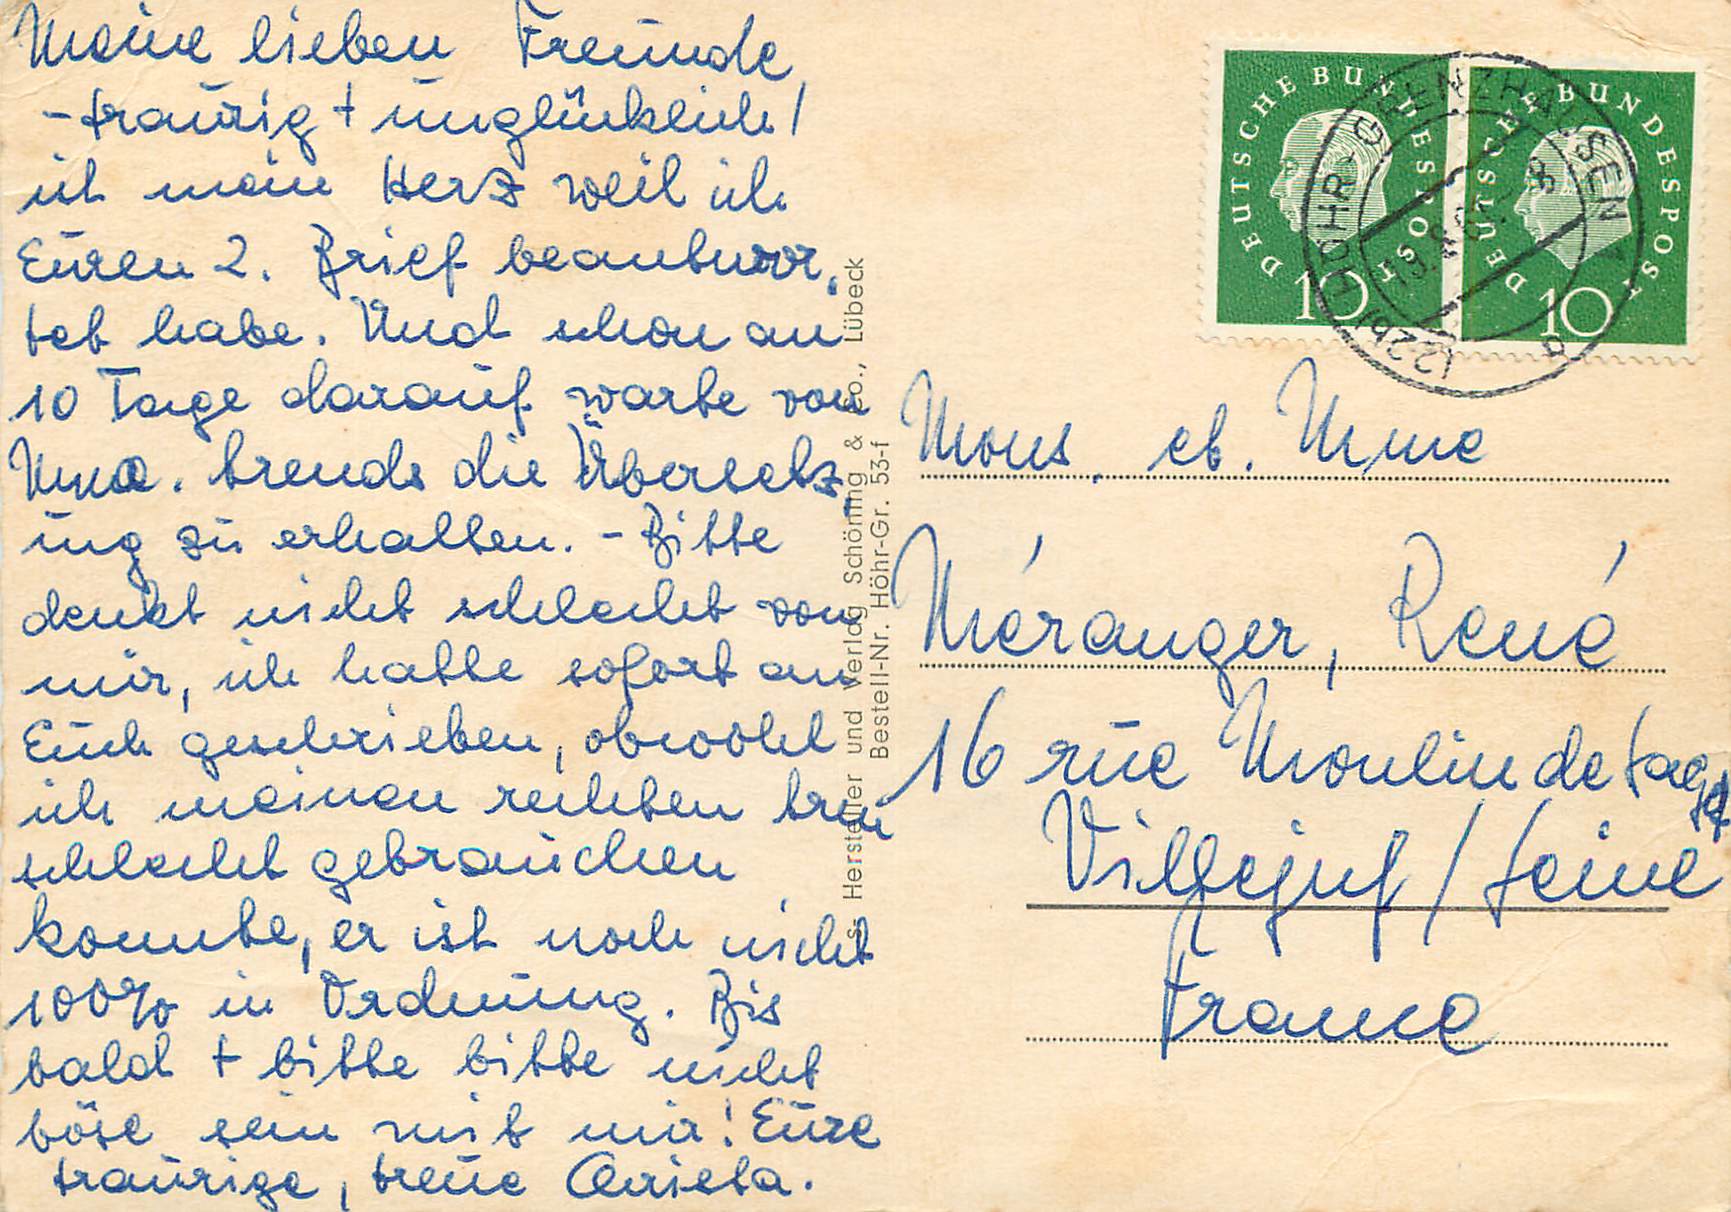 Meine lieben Freunde
- traurig + unglücklich!
ist mein Herz weil ich
Euren 2. Brief beantwor,
tet habe. Und schon an
10 Tage darauf warte von
Mme. die Übersetz,
ung zu erhalten. - Bitte
denkt nicht schlecht von
mir, ich hatte sofort an
Euch geschrieben, obwohl
ich meinen rechten
schlecht gebrauchen
konnte, er ist noch nicht
100% in Ordnung. Bis
bald + bitte bitte nicht
böse sein mit mir! Eure
traurige, treue
S. Hersteller und Verlag Schöning & Co., Lübeck
Bestell-Nr. Höhr-Gr. 53-f
DEUTSCHE BUNDESPOST
10
DEUTSCHE BUNDESPOST
10
(22b) HÖHR-GRENZHAUSEN
Mons. et. Mme
Méranger, René
16 rue Moulin de
Villejuif / Seine
France